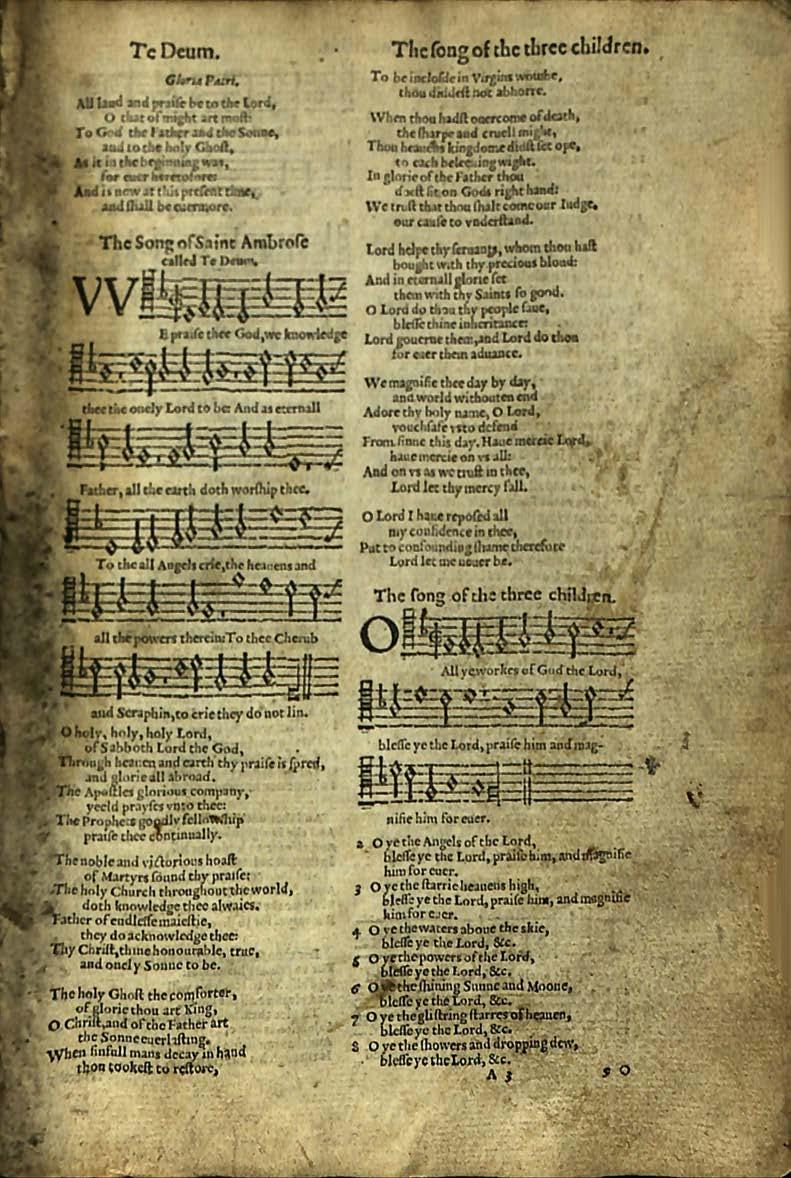 Te Deum.
Gloria Patri.
All laud and praise be to the Lord,
O that of might art most:
To God the Father and the Sonne,
and to the holy Ghost,
As it in the beginning was,
for euer heretofore:
And is now at this present time,
and shall be euermore.
The Song of Saint Ambrose
called Te Deum.
VVE praise thee God, we knowledge
thee the onely Lord to be: And as eternall
Father, all the earth doth worship thee.
To the all Angels crie, the heauens and
all the powers therein: To thee Cherub
and Seraphin, to crie they do not lin.
O holy, holy, holy Lord,
of Sabboth Lord the God,
Through heauen and earth thy praise is spred,
and glorie all abroad.
The Apostles glorious company,
yeeld prayses vnto thee:
The Prophets goodly fellowship
praise thee continually.
The noble and victorious hoast
of Martyrs sound thy praise:
The holy Church throughout the world,
doth knowledge thee alwaies.
Father of endlesse maiestie,
they do acknowledge thee:
Thy Christ, thine honourable, true,
and onely Sonne to be.
The holy Ghost the comforter,
of glorie thou art King,
O Christ, and of the Father art
the Sonne euerlasting.
When sinfull mans decay in hand
thou tookest to restore,
The song of the three children.
To be inclosde in Virgins wombe,
thou diddest not abhorre.
When thou hadst ouercome of death,
the sharpe and cruell might,
Thou heauens kingdome didst set ope,
to each beleeuing wight.
In glorie of the Father thou
doest sit on Gods right hand:
We trust that thou shalt come our Iudge,
our cause to vnderstand.
Lord helpe thy seruants, whom thou hast
bought with thy precious bloud:
And in eternall glorie set
them with thy Saints so good.
O Lord do thou thy people saue,
blesse thine inheritance:
Lord gouerne them, and Lord do thou
for euer them aduance.
We magnifie thee day by day,
and world withouten end
Adore thy holy name, O Lord,
vouchsafe vs to defend
From sinne this day. Haue mercie Lord,
haue mercie on vs all:
And on vs as we trust in thee,
Lord let thy mercy fall.
O Lord I haue reposed all
my confidence in thee,
Put to confounding shame therefore
Lord let me neuer be.
The song of the three children.
O All ye workes of God the Lord,
blesse ye the Lord, praise him and mag-
nifie him for euer.
2 O ye the Angels of the Lord,
blesse ye the Lord, praise him, and magnifie
him for euer.
3 O ye the starrie heauens high,
blesse ye the Lord, praise him, and magnifie
him for euer.
4 O ye the waters aboue the skie,
blesse ye the Lord, &c.
5 O ye the powers of the Lord,
blesse ye the Lord, &c.
6 O ye the shining Sunne and Moone,
blesse ye the Lord, &c.
7 O ye the glistring starres of heauen,
blesse ye the Lord, &c.
8 O ye the showers and dropping dew,
blesse ye the Lord, &c.
A 3 9 O